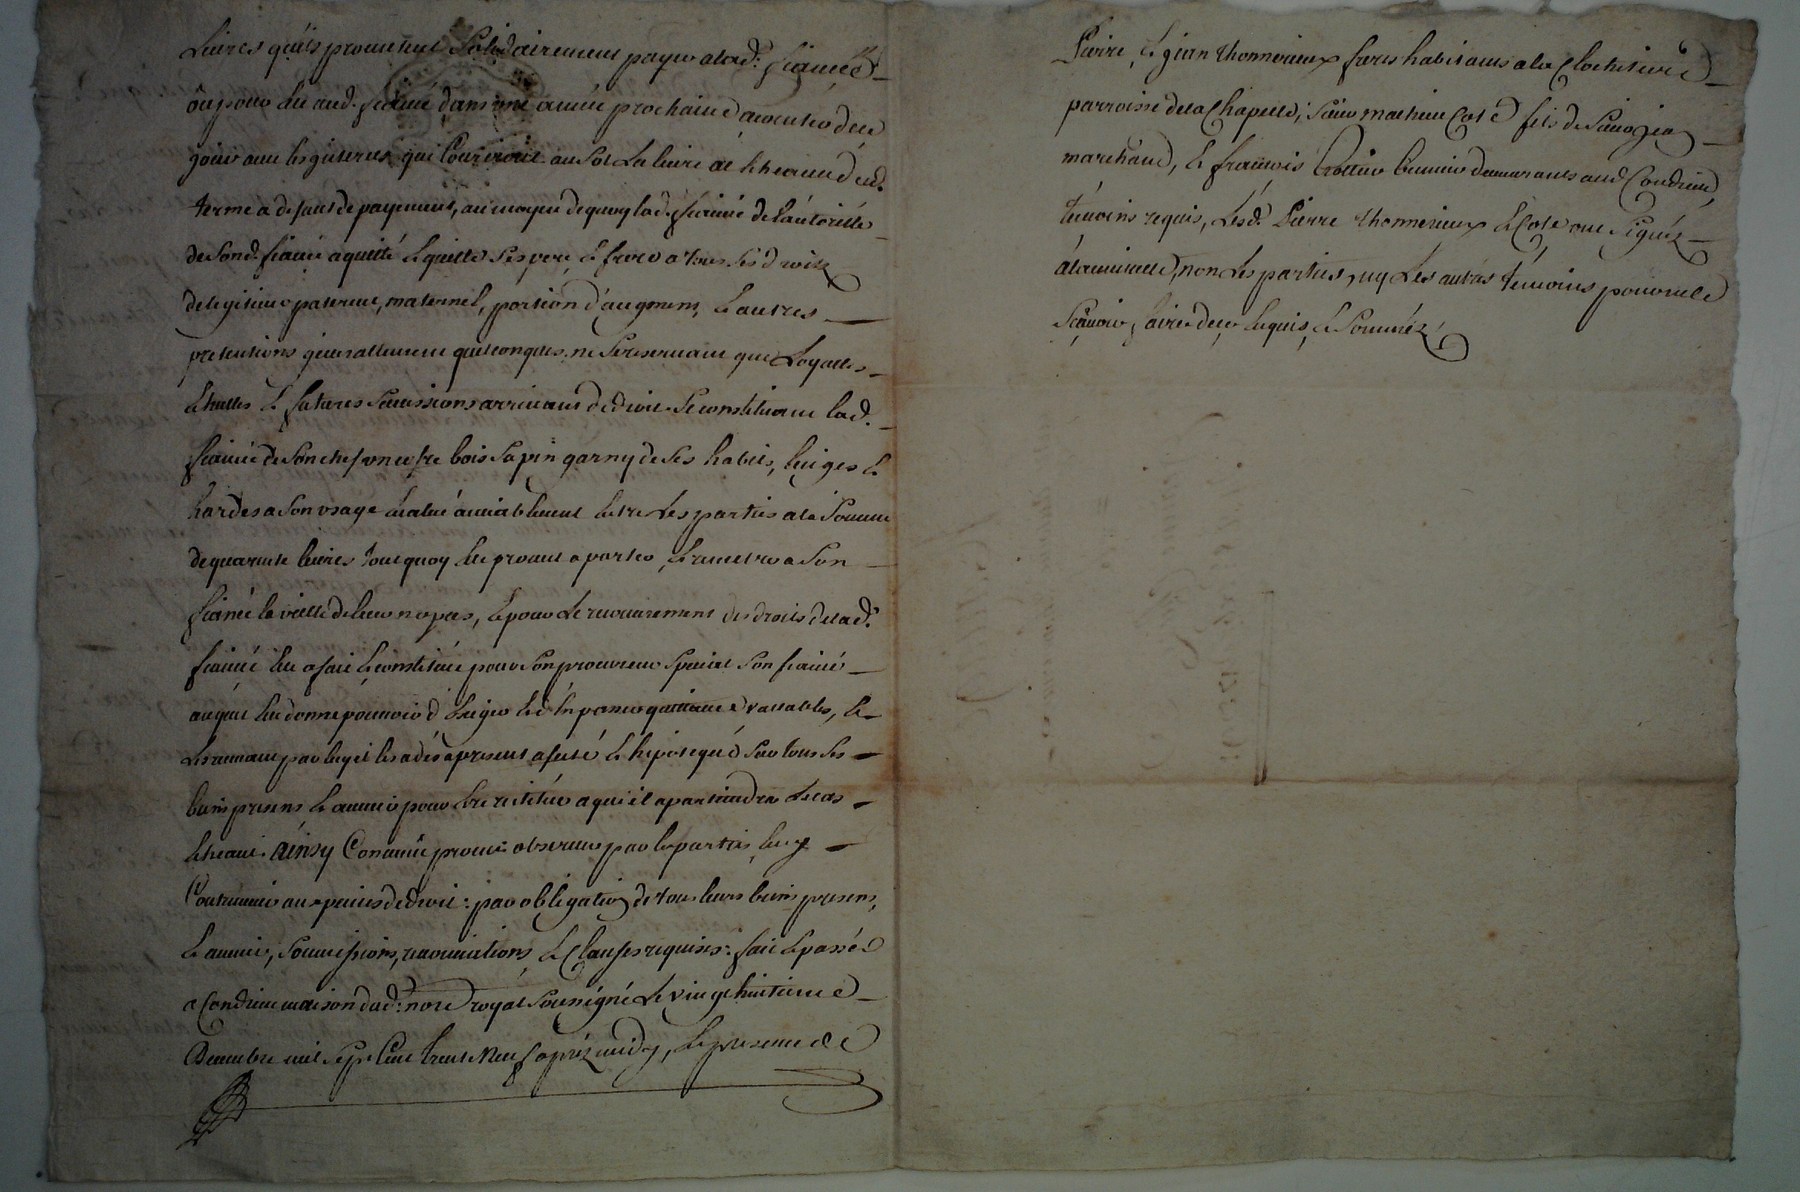 Livres qu'ils promettent solidairement payer a lad. fiancée
ou pour elle aud. fiancé dans une année prochaine a compter de ce
jour avec les interets qui courront au sol la livre a l'echeance dud.
terme a defaut de payement, au moyen de quoy lad. fiancée de l'autorité
de sond. fiancé a quitté et quitte ses pere et frere a tous ses droits
de legitime paternel, maternel, portion d'augment, et autres
pretentions generallement quelconques, ne se reservant que loyalles
echuttes et futures successions arrivant de droit. Se constituant lad.
fiancée de son chef un coffre bois sapin garny de ses habits, linges et
hardes a son usage evalué amiablement entre les parties a la somme
de quarante livres tout quoy elle promet aporter et remettre a son
fiancé la veille de leur nopces, et pour le recouvrement des droits de lad.
fiancée elle a fait et constitué pour son procureur special son fiancé
auquel elle donne pouvoir d'exiger et d'en passer quittance vallables, et
les recevant par luy il les a dés a present assuré et hipotequé sur tous ses
biens presens et avenir pour etre restitué a qui il apartiendra le cas
echeant. Ainsy convenu promis observer par les parties, sans y
contrevenir aux peines de droit: par obligation de tous leurs biens presens,
et avenir, soumissions, renonciations, et clauses requises: fait et passé
a Condrieu maison dud. nore royal soussigné le vingt huitieme
Decembre mil sept cent trente neuf aprés midy, en presence de
Pierre, et jean thonnerieux freres habitans a la Rocheterie
parroisse de la Chapelle, sieur mathieu Coste fils de sieur jean
marchand, et francois demeurants aud. Condrieu,
temoins requis, Lesd. Pierre thonnerieux et Coste ont signés
a la minutte, non les parties, ny les autres temoins pour ne le
sçavoir faire de ce enquis, et sommés